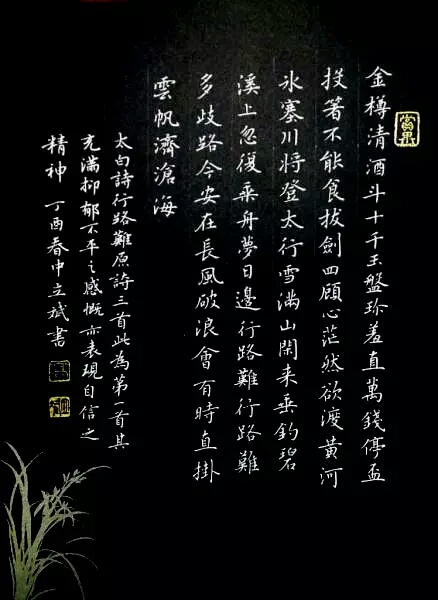 金樽清酒斗十千玉盤珎羞直萬錢停盃
投著不能食拔劍四顧心茫然欲渡黃河
冰塞川將登太行雪滿山閑来垂釣碧
溪上忽復乘舟夢日邊行路難行路難
多歧路今安在長風破浪會有時直掛
雲帆濟滄海
太白詩行路難原詩三首此為第一首其
充滿抑郁不平之感慨亦表現自信之
精神 丁酉春中立斌書